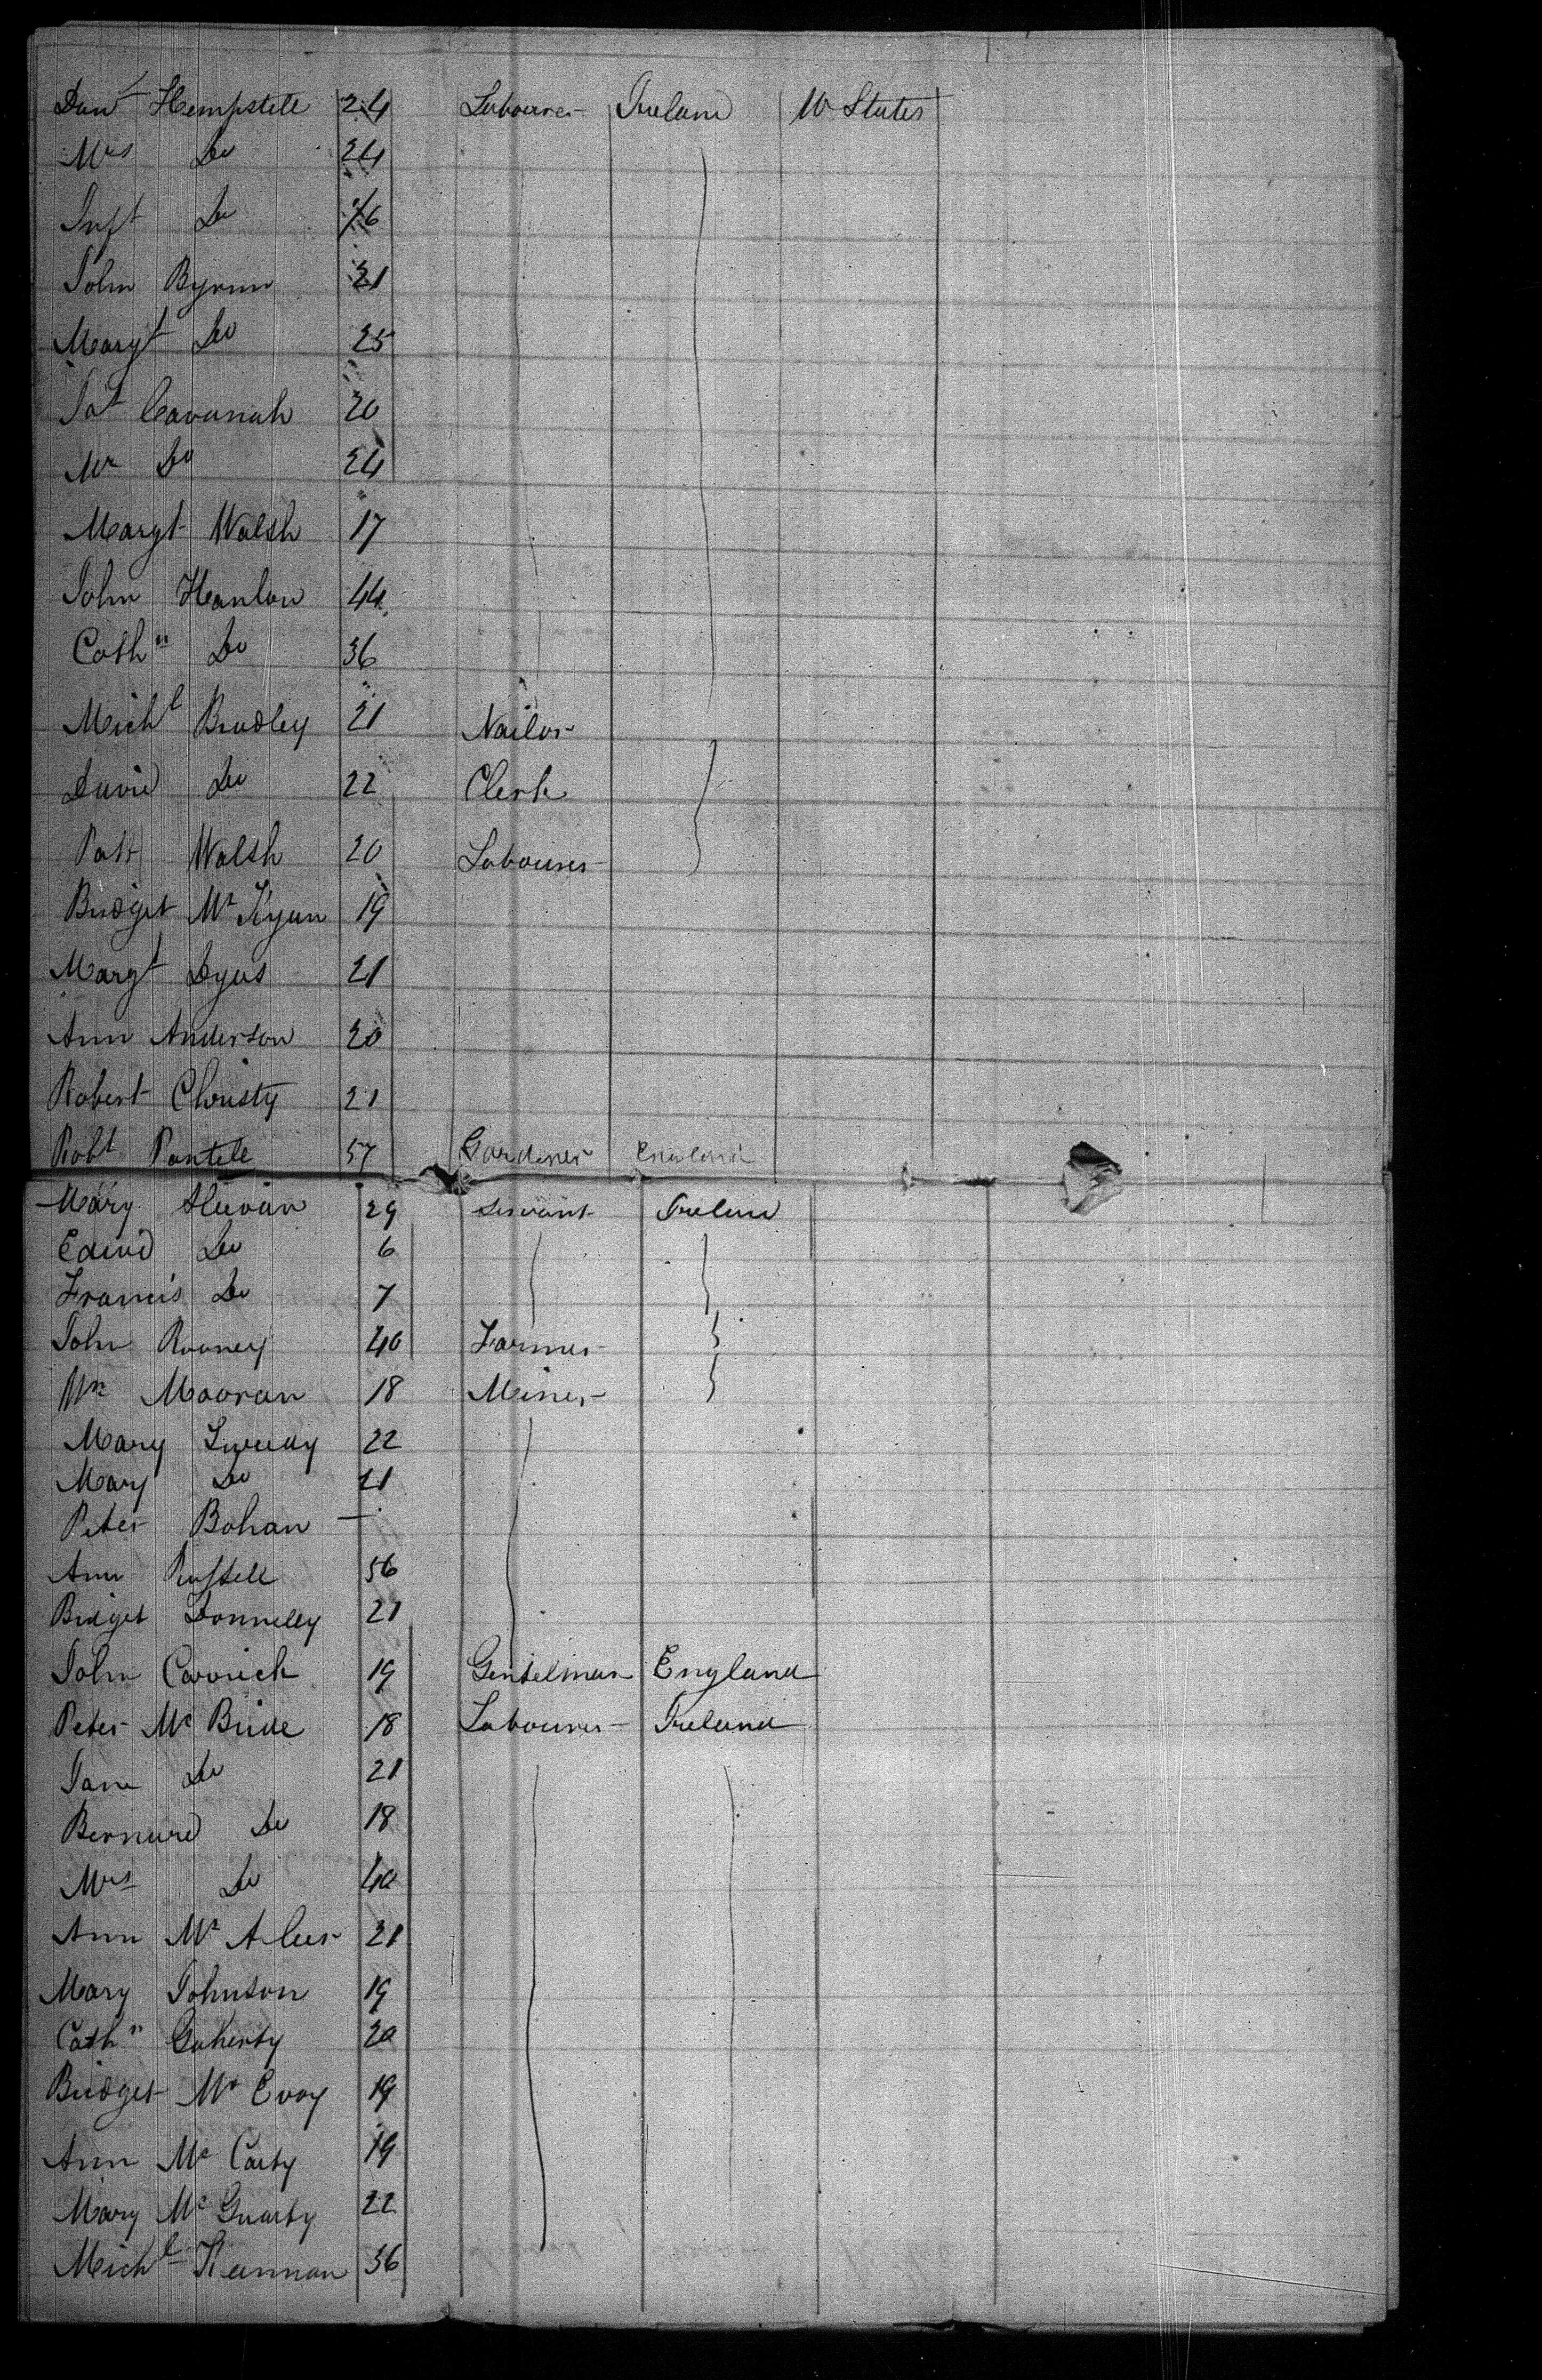 Danl Hempstele 24 Labourer Ireland U States
Mrs Do 24
Inft Do 1/6
John Byrnn 21
Margt Do 25
Pat Cavanah 20
Mr Do 24
Margt Walsh 17
John Hanlon 44
Cathn Do 36
Michl Bradley 21 Nailor
David Do 22 Clerk
Patt Walsh 20 Labourer
Bridget Mc Kyan 19
Margt Dyus 21
Ann Anderson 20
Robert Christy 21
Robt Pontele 57 Gardener England
Mary Slevan 29 Servant Ireland
Edwd Do 6
Francis Do 7
John Rooney 40 Farmer
Wm Mooran 18 Miner
Mary Sweeny 22
Mary Do 21
Peter Bohan —
Ann Russell 56
Bridget Donnelly 21
John Carrick 19 Gentelman England
Peter Mc Bride 18 Labourer Ireland
Jane Do 21
Bernard Do 18
Mrs Do 40
Ann Mc Aleer 21
Mary Johnson 19
Cathn Goherty 20
Bridget Mc Evoy 19
Ann Mc Carty 19
Mary Mc Gnarty 22
Michl Keernan 36